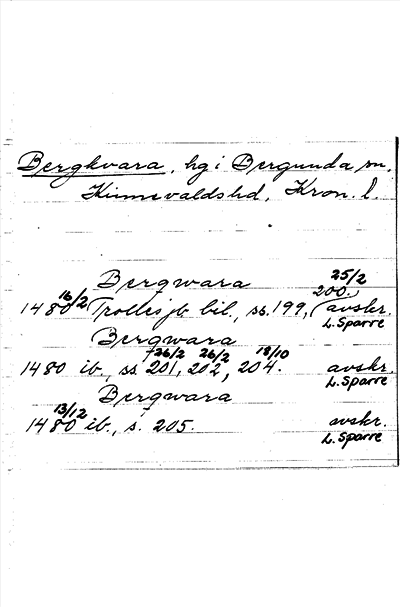 Bergkvara, hg i Bergunda sn,
Kinnevaldshd, Kron. l.
Bergwara 25/2
1480 16/2 Trollesjb bil., ss. 199, 200. avskr.
L. Sparre
Bergwara
1480 ib., ss. 201, 26/2 202, 26/2 204. 18/10 avskr.
L. Sparre
Bergwara
1480 13/12 ib., s. 205. avskr.
L. Sparre